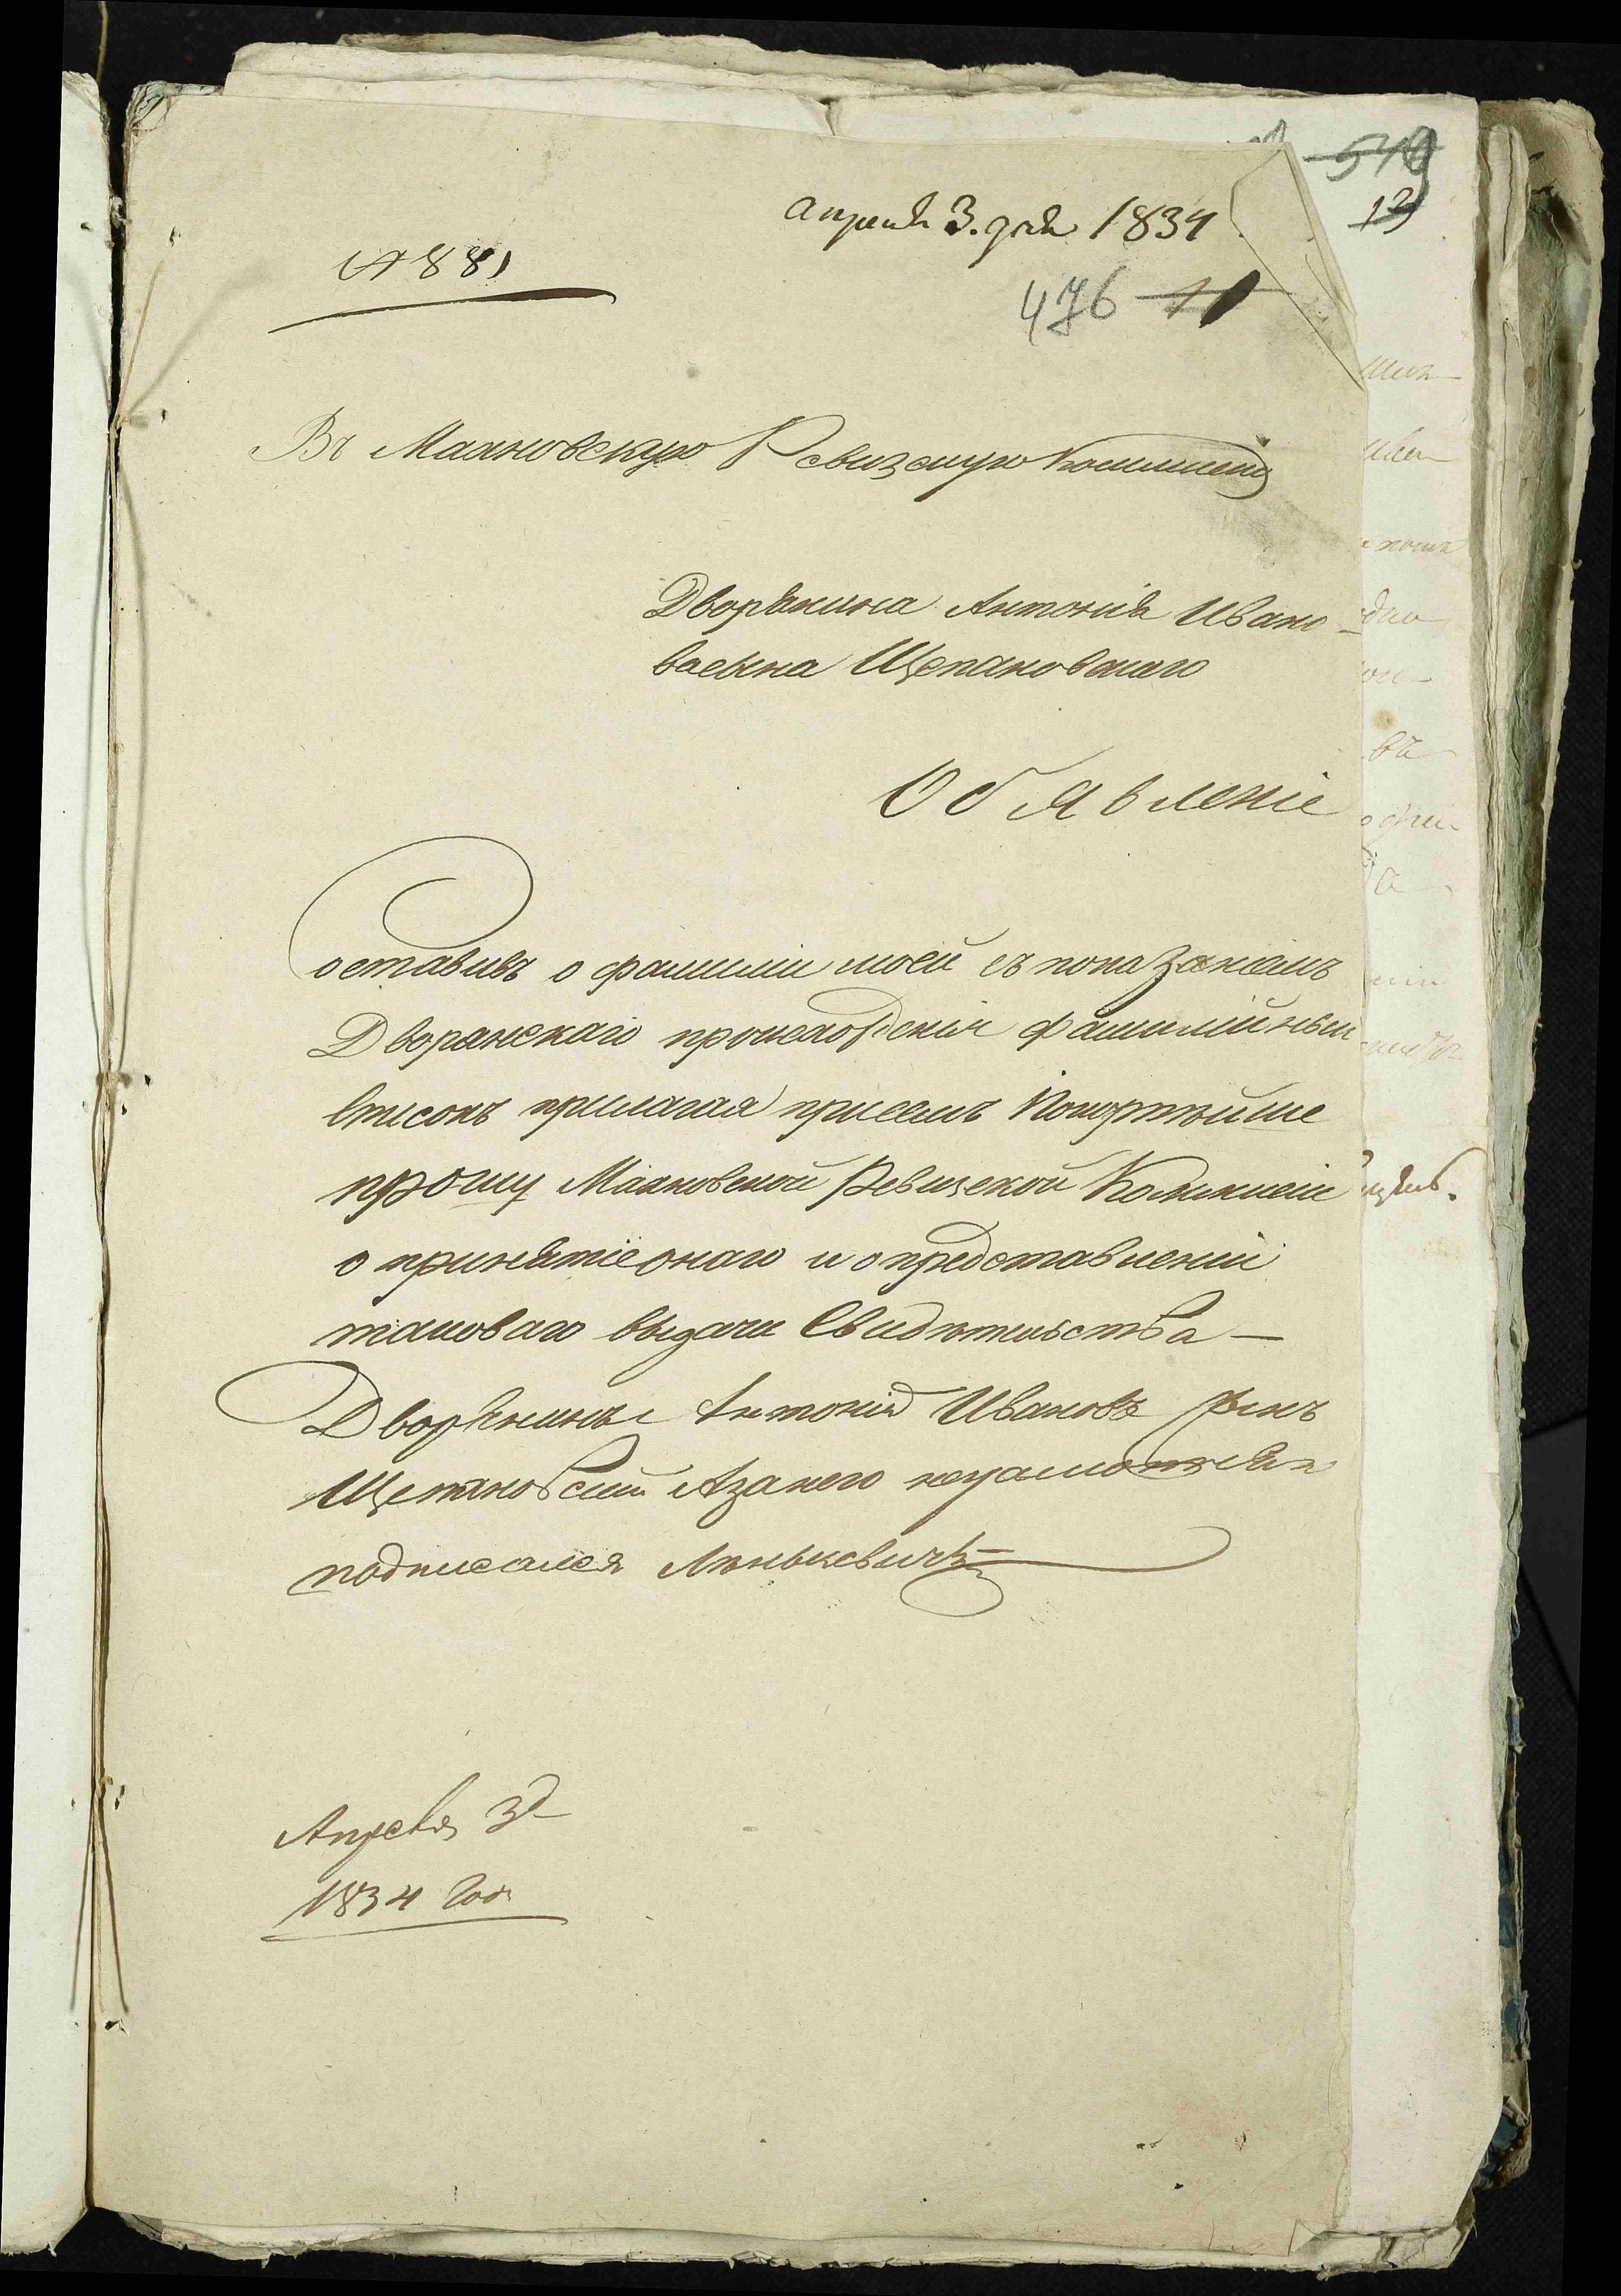 540
13
апреля 3. дня 1834
№ 881
476 11
Въ Маяновскую Ревизскую Коммисію
Дворянина Антонія Ивано
ва сына Щепановскаго
Обявленіе
Составивъ о фамиліи моей съ показаніемъ
Дворянскаго происхожденія фамилійный
списокъ прилагая присемъ Покорнейше
прошу Маяновской Ревизской Коммисіи
о принятіе онаго и о представленіи
таковаго выдачи Свидѣтельства —
Дворянинъ Антоній Ивановъ сынъ
Щепановскій А за него неграмотнаго
подписался
Апреля 3д
1834 Года